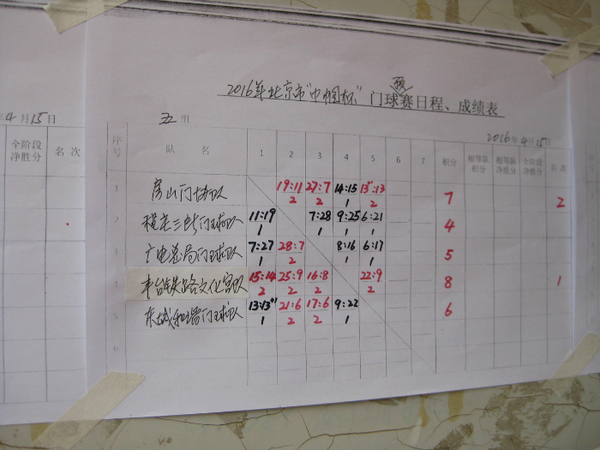 年4月15日
全阶段净胜分 名次
预
2016年北京市“中国杯”门球赛日程、成绩表
五 组
2016年4月15日
序号 队 名 1 2 3 4 5 6 7 积分 相等队积分 相等队净胜分 全阶段净胜分 名次
1 房山门球队 19:11 27:7 14:15 13⁺¹:13 7 2
2 2 1 2
2 门球队 11:19 7:28 9:25 6:21 4
1 1 1 1
3 广电总局门球队 7:27 28:7 8:16 6:17 5
1 2 1 1
4 丰台铁路文化宫队 15:14 25:9 16:8 22:9 8 1
2 2 2 2
5 东城和门球队 13:13⁺¹ 21:6 17:6 9:22 6
1 2 2 1
6